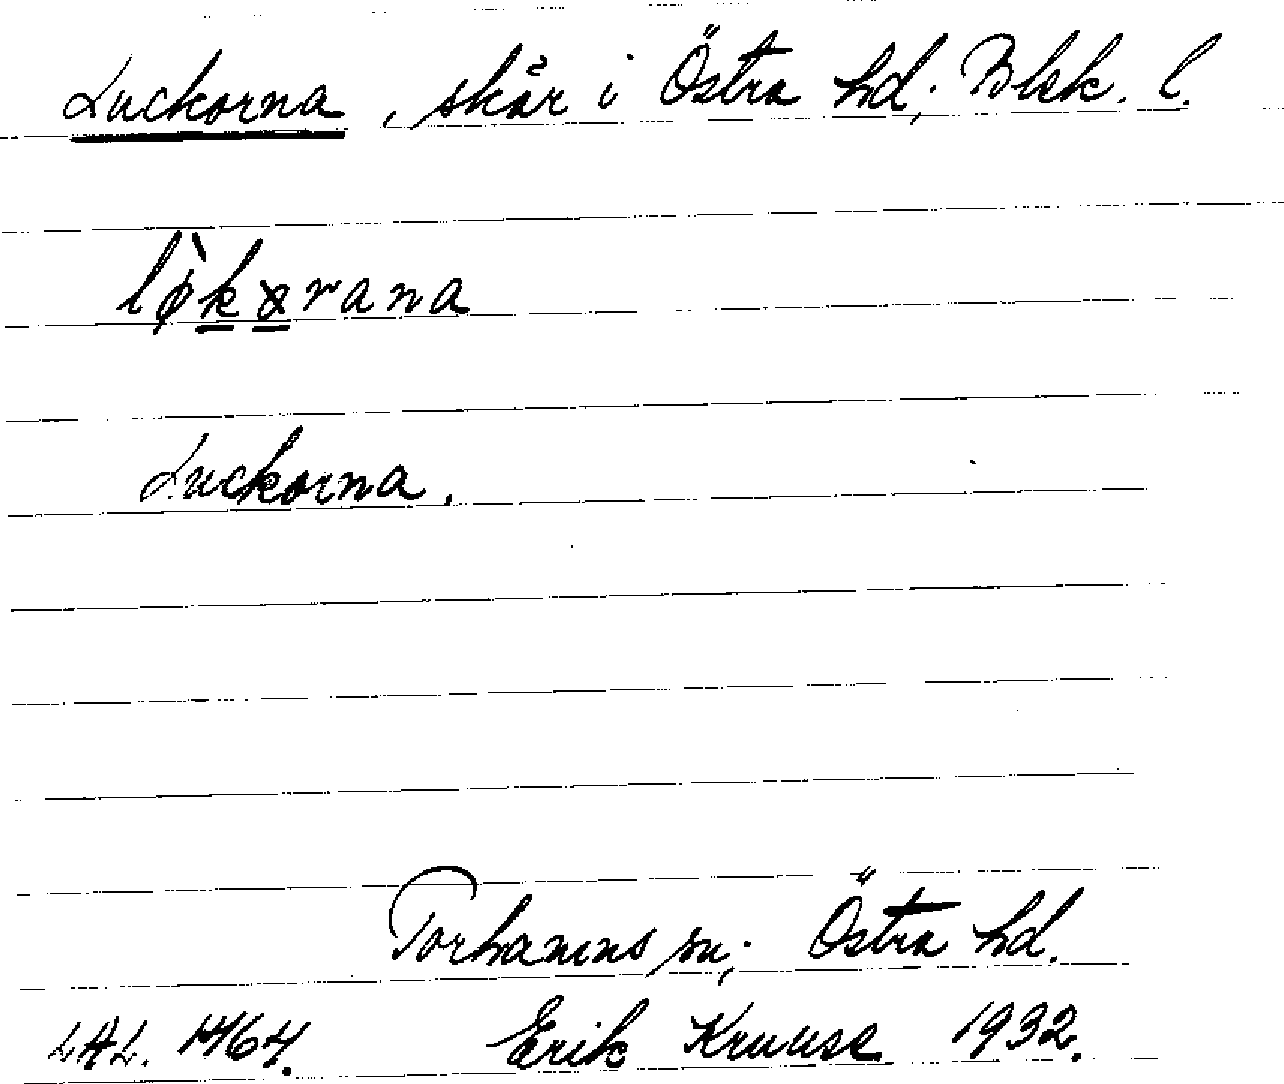 Luckorna, skär i Östra hd; Blek. l.
lø̀kɤrana
Luckorna.
Torhamns sn; Östra hd.
LAL. 1464. Erik Kruuse 1932.